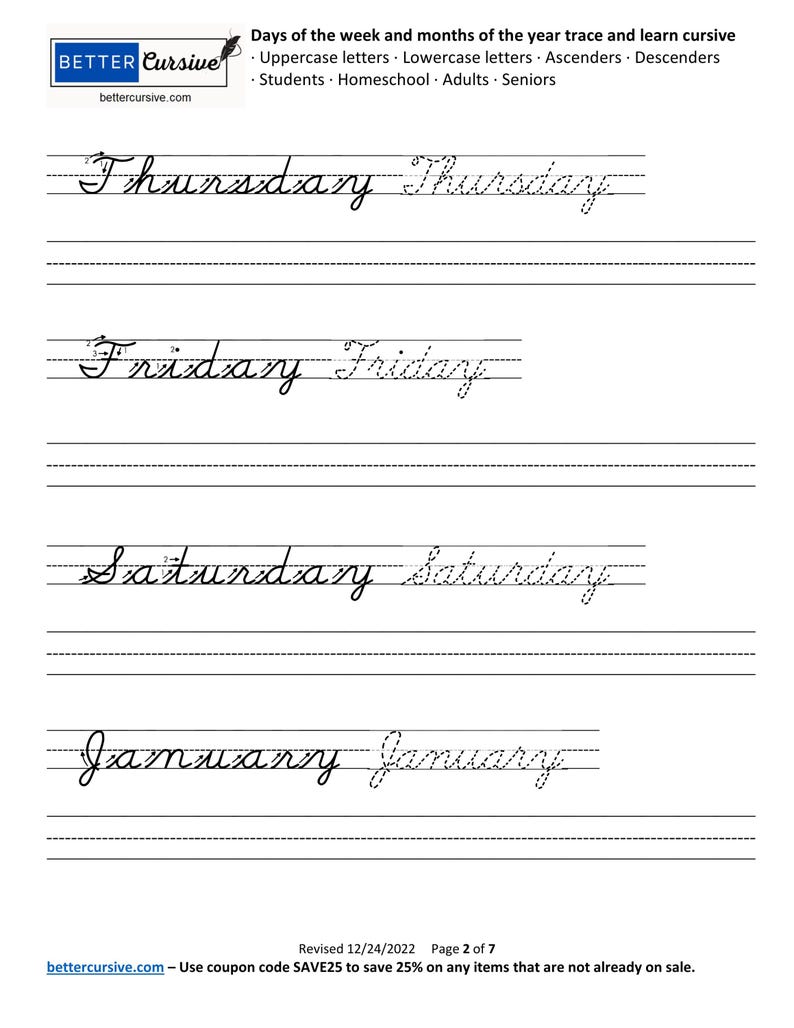 BETTER Cursive
bettercursive.com
Days of the week and months of the year trace and learn cursive
· Uppercase letters · Lowercase letters · Ascenders · Descenders
· Students · Homeschool · Adults · Seniors
Thursday Thursday
Friday Friday
Saturday Saturday
January January
Revised 12/24/2022 Page 2 of 7
bettercursive.com – Use coupon code SAVE25 to save 25% on any items that are not already on sale.